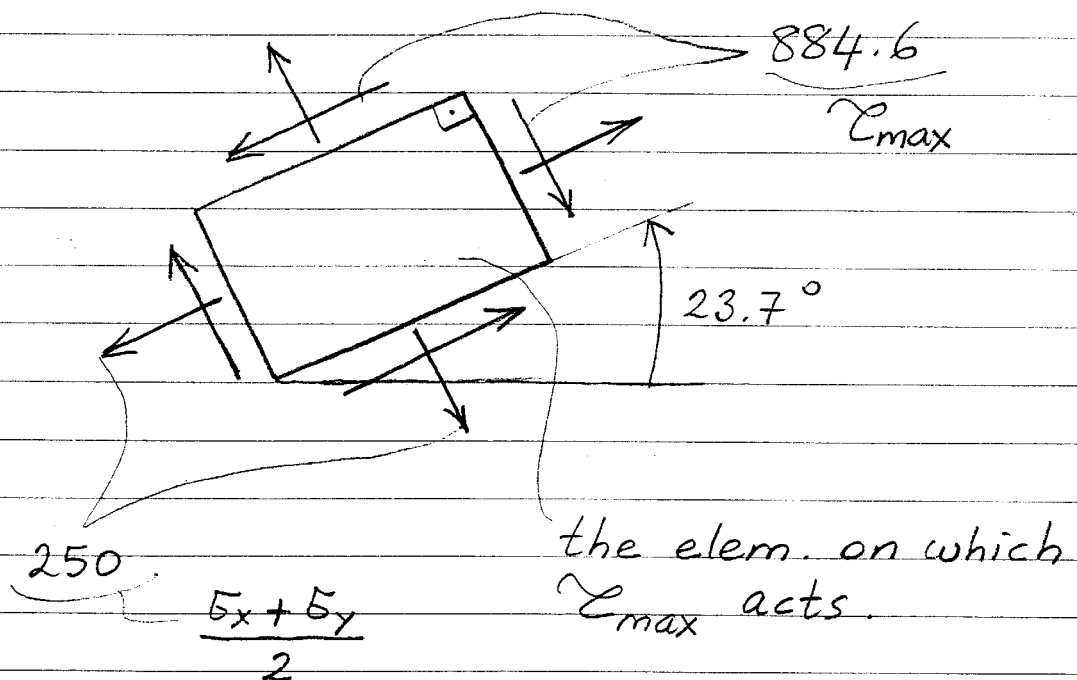 884.6
τmax
23.7°
250
σx + σy
2
the elem. on which
τmax acts.